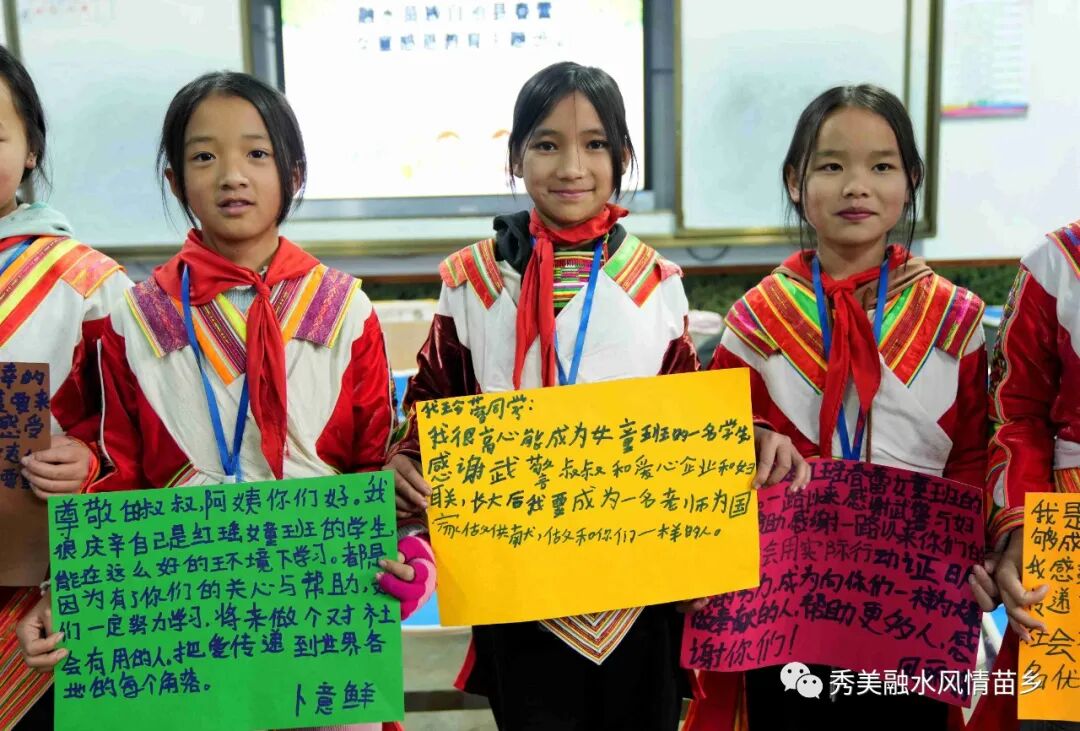 融水苗族自治县春蕾
女童感恩教育主题活
幸的
爱来
感受
尊敬的叔叔,阿姨你们好。我
很庆辛自己是红瑶女童班的学生
能在这么好的环境下学习。都是
因为有了你们的关心与帮助,
们一定努力学习,将来做个对社
会有用的人,把爱传递到世界各
地的每个角落。
卜意鲜
同学:
我很高心能成为女童班的一名学生
感谢武警叔叔和爱心企业和妇
联,长大后我要成为一名老师为国
家做供献,做和你们一样的人。
红瑶春蕾女童班的
一路以来感谢武警与妇
助感谢一路以来你们的
会用实际行动证明
努力,成为向你们一样的大
做奉献的人,帮助更多的人,感
谢你们!
我是
够成
我感
传递
社会
名优
秀美融水风情苗乡